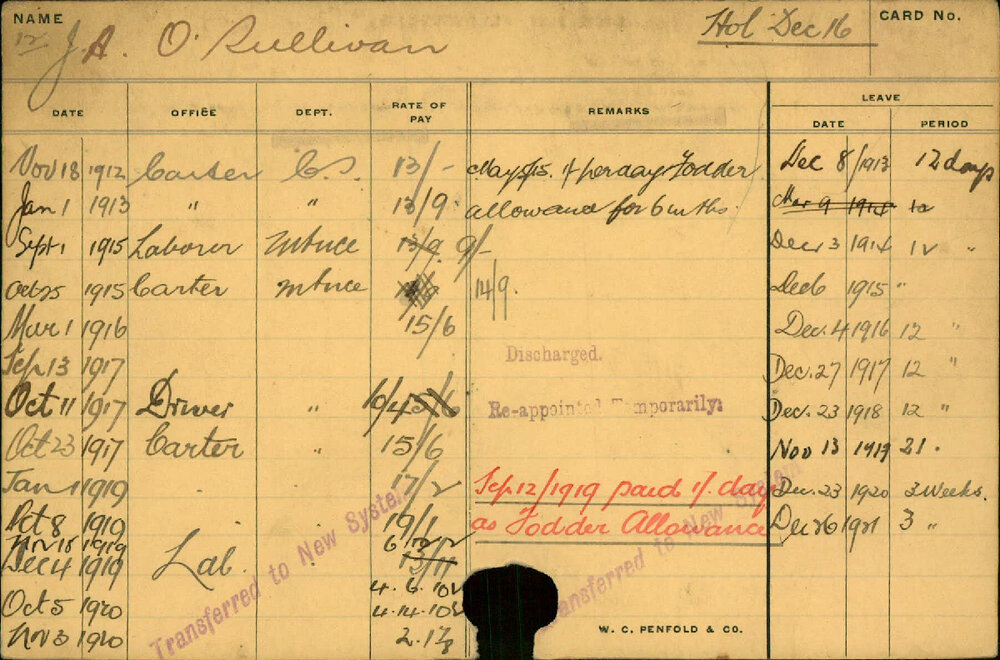 NAME
J. A. O'Sullivan
Hol Dec 16
CARD No.
DATE OFFICE DEPT. RATE OF PAY REMARKS LEAVE
DATE PERIOD
Nov 18 1912 Carter C.S. 13/- May 5/15. 1/- per day Fodder Dec 8/1913 12 days
Jan 1 1913 " " 13/9 allowance for 6 mths. Mar 9 1914 12
Sept 1 1915 Laborer Mtnce 13/9. 9/- Dec 3 1914 12 "
Oct 25 1915 Carter Mtnce 14/9. Dec 6 1915 "
Mar 1 1916 15/6 Dec. 4 1916 12 "
Sep. 13 1917 Discharged. Dec. 27 1917 12 "
Oct 11 1917 Driver " Re-appointed Temporarily: Dec. 23 1918 12 "
Oct 23 1917 Carter " 15/6 Nov 13 1919 21.
Jan 1 1919 17/2 Sep 12/1919 paid 1/. day Dec. 23 1920 3 Weeks.
Oct 8 1919 19/1 as Fodder Allowance Dec 26 1921 3 "
Nov 18 1919
Dec 4 1919 Lab. 13/11
4. 6. 10½
Oct 5 1920 4.14.10½
Nov 3 1920
Transferred to New System
Transferred to New System
W. C. PENFOLD & CO.